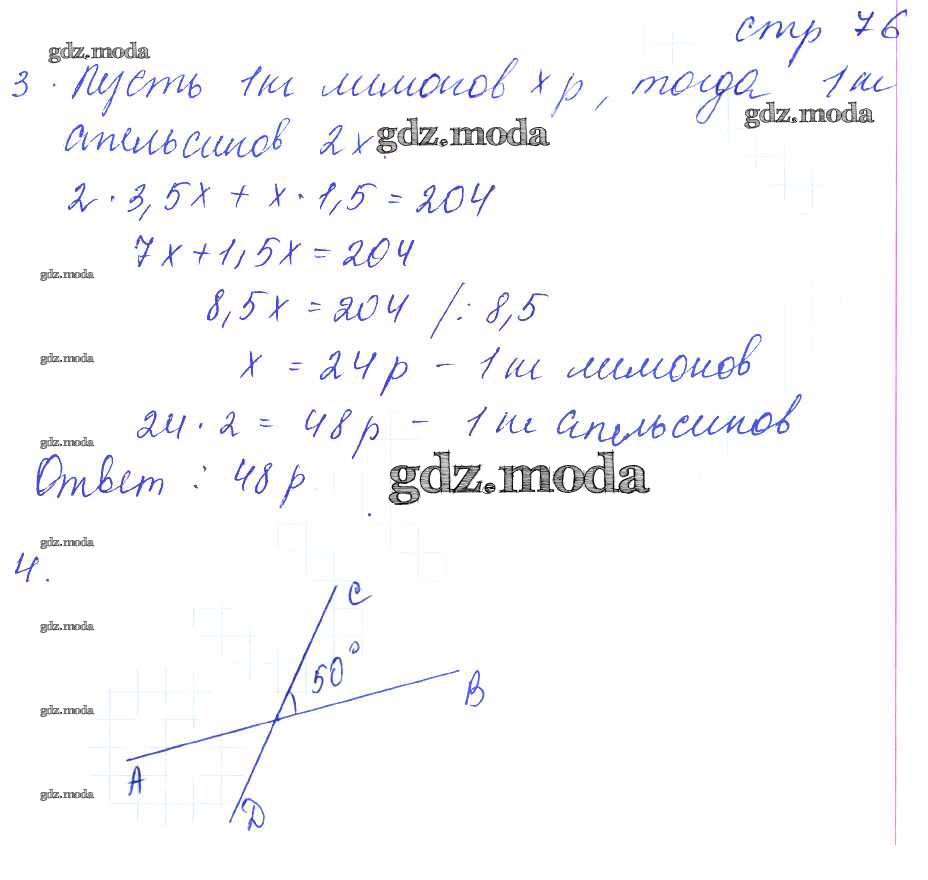 стр 76
gdz.moda
3. Пусть 1кг лимонов x р, тогда 1кг
gdz.moda
апельсинов 2x.
gdz.moda
2 · 3,5x + x · 1,5 = 204
7x + 1,5x = 204
gdz.moda
8,5x = 204 /: 8,5
gdz.moda
x = 24р – 1кг лимонов
24 · 2 = 48р – 1кг апельсинов
gdz.moda
Ответ: 48р.
gdz.moda
gdz.moda
4.
C
gdz.moda
50°
B
gdz.moda
A
gdz.moda
D